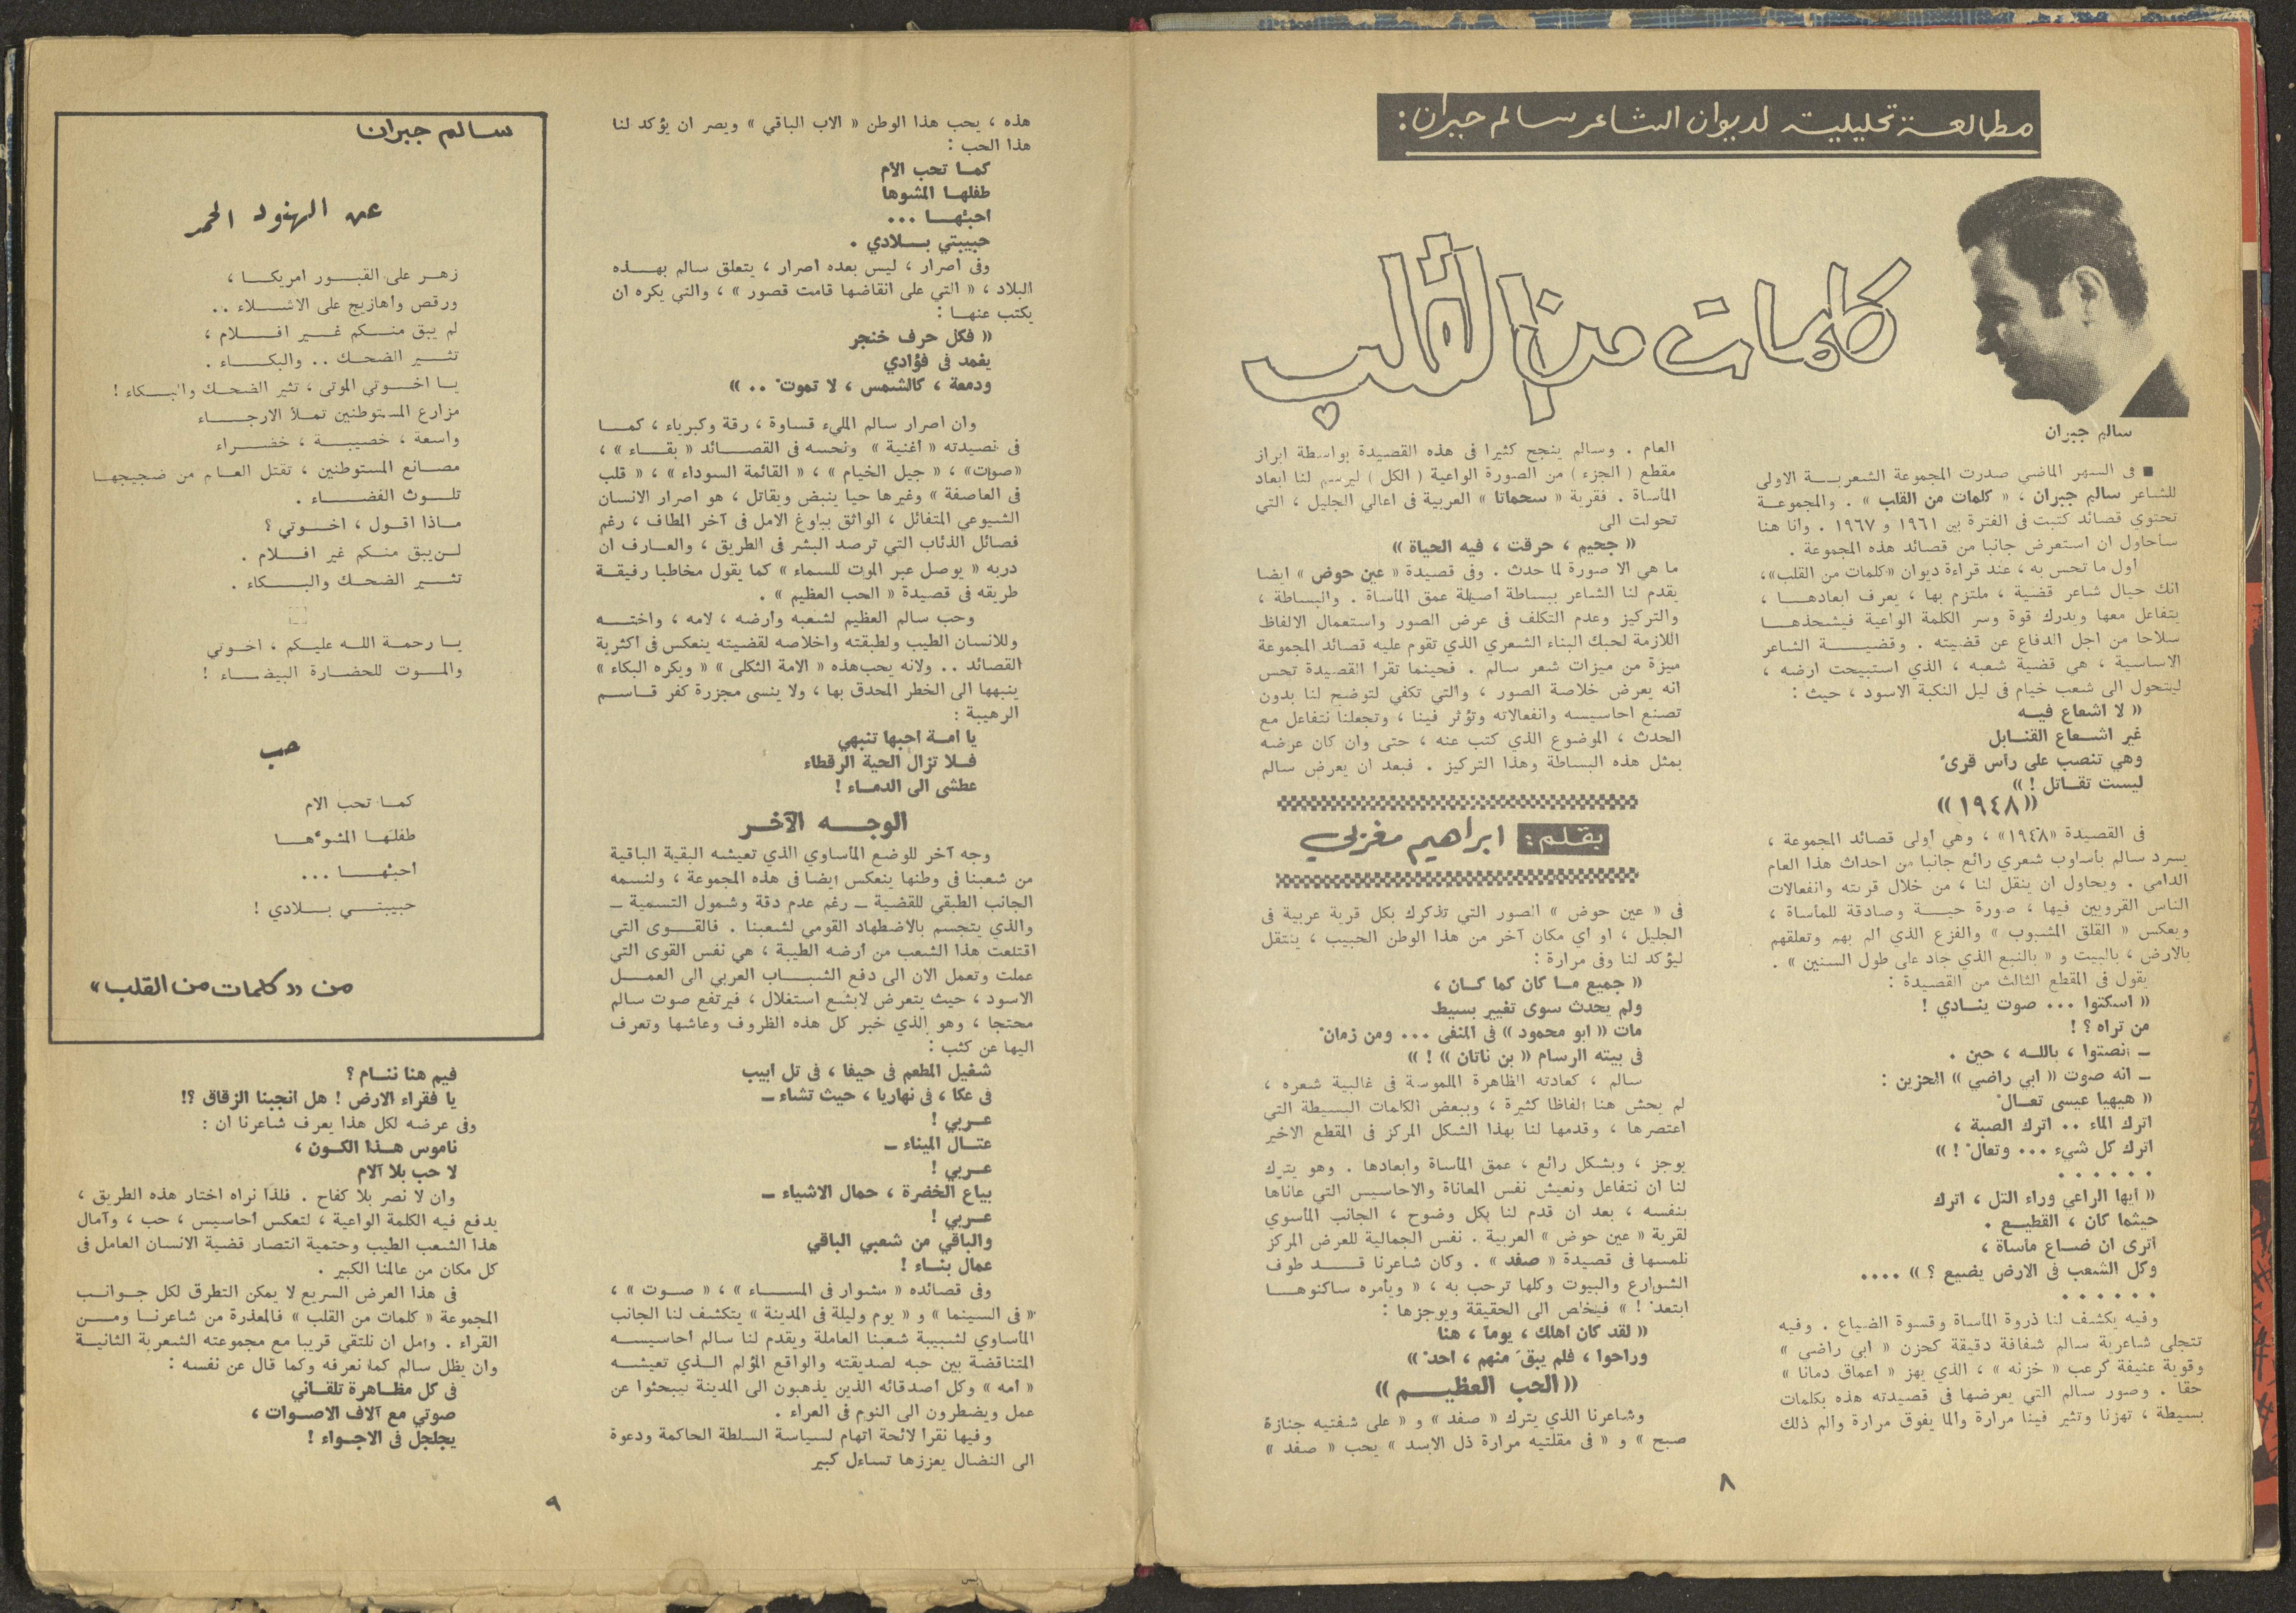 مطالعة تحليلية لديوان الشاعر سالم جبران :
كلمات من القلب
سالم جبران
■ في الشهر الماضي صدرت المجموعة الشعرية الاولى
للشاعر سالم جبران ، « كلمات من القلب » . والمجموعة
تحتوي قصائد كتبت في الفترة بين ١٩٦١ و ١٩٦٧ . وانا هنا
سأحاول ان استعرض جانبا من قصائد هذه المجموعة .
اول ما تحس به ، عند قراءة ديوان «كلمات من القلب» ،
انك حيال شاعر قضية ، ملتزم بها ، يعرف ابعادها ،
يتفاعل معها ويدرك قوة وسر الكلمة الواعية فيشحذها
سلاحا من اجل الدفاع عن قضيته . وقضية الشاعر
الاساسية ، هي قضية شعبه ، الذي استبيحت ارضه ،
ليتحول الى شعب خيام في ليل النكبة الاسود ، حيث :
« لا اشعاع فيه
غير اشعاع القنابل
وهي تنصب على رأس قرىً
ليست تقاتل ! »
«١٩٤٨»
في القصيدة «١٩٤٨» ، وهي اولى قصائد المجموعة ،
يسرد سالم بأسلوب شعري رائع جانبا من احداث هذا العام
الدامي . ويحاول ان ينقل لنا ، من خلال قريته وانفعالات
الناس القرويين فيها ، صورة حية وصادقة للمأساة ،
ويعكس « القلق المشبوب » والفزع الذي الم بهم وتعلقهم
بالارض ، بالبيت و « بالنبع الذي جاد على طول السنين » .
يقول في المقطع الثالث من القصيدة :
« اسكتوا ... صوت ينادي !
من تراه ؟ !
ـ انصتوا ، بالله ، حين .
ـ انه صوت « ابي راضي » الحزين :
« هيهيا عيسى تعالْ
اترك الماء .. اترك الصبة ،
اترك كل شيء ... وتعالْ ! »
. . . . . .
« ايها الراعي وراء التل ، اترك
حيثما كان ، القطيع .
أترى ان ضاع مأساة ،
وكل الشعب في الارض يضيع ؟ » ....
. . . . . .
وفيه يكشف لنا ذروة المأساة وقسوة الضياع . وفيه
تتجلى شاعرية سالم شفافة دقيقة كحزن « ابي راضي »
وقوية عنيفة كرعب « خزنه » ، الذي يهز « اعماق دمانا »
حقا . وصور سالم التي يعرضها في قصيدته هذه بكلمات
بسيطة ، تهزنا وتثير فينا مرارة والما يفوق مرارة والم ذلك
العام . وسالم ينجح كثيرا في هذه القصيدة بواسطة ابراز
مقطع ( الجزء ) من الصورة الواعية ( الكل ) ليرسم لنا ابعاد
المأساة . فقرية « سحماتا » العربية في اعالي الجليل ، التي
تحولت الى
« جحيم ، حرقت ، فيه الحياة »
ما هي الا صورة لما حدث . وفي قصيدة « عين حوض » ايضا
يقدم لنا الشاعر ببساطة أصيلة عمق المأساة . والبساطة ،
والتركيز وعدم التكلف في عرض الصور واستعمال الالفاظ
اللازمة لحبك البناء الشعري الذي تقوم عليه قصائد المجموعة
ميزة من ميزات شعر سالم . فحينما تقرأ القصيدة تحس
انه يعرض خلاصة الصور ، والتي تكفي لتوضح لنا بدون
تصنع احاسيسه وانفعالاته وتؤثر فينا ، وتجعلنا نتفاعل مع
الحدث ، الموضوع الذي كتب عنه ، حتى وان كان عرضه
بمثل هذه البساطة وهذا التركيز . فبعد ان يعرض سالم
بقلم : ابراهيم مغزلي
في « عين حوض » الصور التي تذكرك بكل قرية عربية في
الجليل ، او اي مكان آخر من هذا الوطن الحبيب ، ينتقل
ليؤكد لنا وفي مرارة :
« جميع ما كان كما كان ،
ولم يحدث سوى تغيير بسيط
مات « ابو محمود » في المنفى ... ومن زمانْ
في بيته الرسام « بن ناتان » ! »
سالم ، كعادته الظاهرة الملموسة في غالبية شعره ،
لم يحش هنا الفاظا كثيرة ، وببعض الكلمات البسيطة التي
اعتصرها ، وقدمها لنا بهذا الشكل المركز في المقطع الاخير
يوجز ، وبشكل رائع ، عمق المأساة وابعادها . وهو يترك
لنا ان نتفاعل ونعيش نفس المعاناة والاحاسيس التي عاناها
بنفسه ، بعد ان قدم لنا بكل وضوح ، الجانب المأسوي
لقرية « عين حوض » العربية . نفس الجمالية للعرض المركز
نلمسها في قصيدة « صفد » . وكان شاعرنا قد طوف
الشوارع والبيوت وكلها ترحب به ، « ويأمره ساكنوها
ابتعدْ ! » فيخلص الى الحقيقة ويوجزها :
« لقد كان اهلك ، يوماً ، هنا
وراحوا ، فلم يبقَ منهم ، احدْ »
«الحب العظيم»
وشاعرنا الذي يترك « صفد » و « على شفتيه جنازة
صبح » و « في مقلتيه مرارة ذل الاسد » يحب « صفد »
٨
هذه ، يحب هذا الوطن « الاب الباقي » ويصر ان يؤكد لنا
هذا الحب :
كما تحب الام
طفلها المشوها
احبُها ...
حبيبتي بلادي .
وفي اصرار ، ليس بعده اصرار ، يتعلق سالم بهذه
البلاد ، « التي على انقاضها قامت قصور » ، والتي يكره ان
يكتب عنها :
« فكل حرف خنجر
يغمد في فؤادي
ودمعة ، كالشمس ، لا تموتْ .. »
وان اصرار سالم المليء قساوة ، رقة وكبرياء ، كما
في قصيدته « أغنية » ونحسه في القصائد « بقاء » ،
«صوات» ، « جيل الخيام » ، « القائمة السوداء » ، « قلب
في العاصفة » وغيرها حيا ينبض ويقاتل ، هو اصرار الانسان
الشيوعي المتفائل ، الواثق ببلوغ الامل في آخر المطاف ، رغم
فصائل الذئاب التي ترصد البشر في الطريق ، والعارف ان
دربه « يوصل عبر الموت للسماء » كما يقول مخاطبا رفيقة
طريقه في قصيدة « الحب العظيم » .
وحب سالم العظيم لشعبه وأرضه ، لامه ، واخته
وللانسان الطيب ولطبقته واخلاصه لقضيته ينعكس في اكثرية
القصائد .. ولانه يحب هذه « الامة الثكلى » « ويكره البكاء »
ينبهها الى الخطر المحدق بها ، ولا ينسى مجزرة كفر قاسم
الرهيبة :
يا امة احبها تنبهي
فلا تزال الحية الرقطاء
عطشى الى الدماء !
الوجه الآخر
وجه آخر للوضع المأساوي الذي تعيشه البقية الباقية
من شعبنا في وطنها ينعكس ايضا في هذه المجموعة ، ولنسمه
الجانب الطبقي للقضية ـ رغم عدم دقة وشمول التسمية ـ
والذي يتجسم بالاضطهاد القومي لشعبنا . فالقوى التي
اقتلعت هذا الشعب من أرضه الطيبة ، هي نفس القوى التي
عملت وتعمل الان الى دفع الشباب العربي الى العمل
الاسود ، حيث يتعرض لابشع استغلال ، فيرتفع صوت سالم
محتجا ، وهو الذي خبر كل هذه الظروف وعاشها وتعرف
اليها عن كثب :
شغيل المطعم في حيفا ، في تل ابيب
في عكا ، في نهاريا ، حيث تشاء ـ
عربي !
عتال الميناء ـ
عربي !
بياع الخضرة ، حمال الاشياء ـ
عربي !
والباقي من شعبي الباقي
عمال بناء !
وفي قصائده « مشوار في المساء » ، « صوت » ،
« في السينما » و « يوم وليلة في المدينة » يتكشف لنا الجانب
المأساوي لشبيبة شعبنا العاملة ويقدم لنا سالم احاسيسه
المتناقضة بين حبه لصديقته والواقع المؤلم الذي تعيشه
« امه » وكل اصدقائه الذين يذهبون الى المدينة ليبحثوا عن
عمل ويضطرون الى النوم في العراء .
وفيها نقرأ لائحة اتهام لسياسة السلطة الحاكمة ودعوة
الى النضال يعززها تساءل كبير
سالم جبران
عن الهنود الحمر
زهر على القبور امريكا ،
ورقص واهازيج على الاشلاء ..
لم يبق منكم غير افلام ،
تثير الضحك .. والبكاء .
يا اخوتي الموتى ، تثير الضحك والبكاء !
مزارع المستوطنين تملأ الارجاء
واسعة ، خصيبة ، خضراء
مصانع المستوطنين ، تقتل العام من ضجيجها
تلوث الفضاء .
ماذا اقول ، اخوتي ؟
لن يبق منكم غير افلام .
تثير الضحك والبكاء .
يا رحمة الله عليكم ، اخوتي
والموت للحضارة البيضاء !
حب
كما تحب الام
طفلَها المشوّها
احبُها ...
حبيبتي بلادي !
من «كلمات من القلب»
فيم هنا ننام ؟
يا فقراء الارض ! هل انجبنا الزقاق ؟!
وفي عرضه لكل هذا يعرف شاعرنا ان :
ناموس هذا الكون ،
لا حب بلا آلام
وان لا نصر بلا كفاح . فلذا نراه اختار هذه الطريق ،
يدفع فيه الكلمة الواعية ، لتعكس احاسيس ، حب ، وآمال
هذا الشعب الطيب وحتمية انتصار قضية الانسان العامل في
كل مكان من عالمنا الكبير .
في هذا العرض السريع لا يمكن التطرق لكل جوانب
المجموعة « كلمات من القلب » فالمعذرة من شاعرنا ومن
القراء . وامل ان نلتقي قريبا مع مجموعته الشعرية الثانية
وان يظل سالم كما نعرفه وكما قال عن نفسه :
في كل مظاهرة تلقاني
صوتي مع آلاف الاصوات ،
يجلجل في الاجواء !
٩